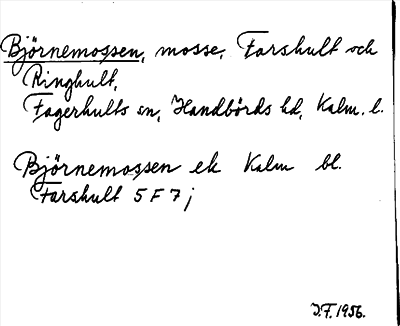 Björnemossen, mosse, Farshult och
Ringhult,
Fagerhults sn, Handbörds hd, Kalm. l.
Björnemossen ek Kalm bl.
Farshult 5 F 7 j
J.F. 1956.